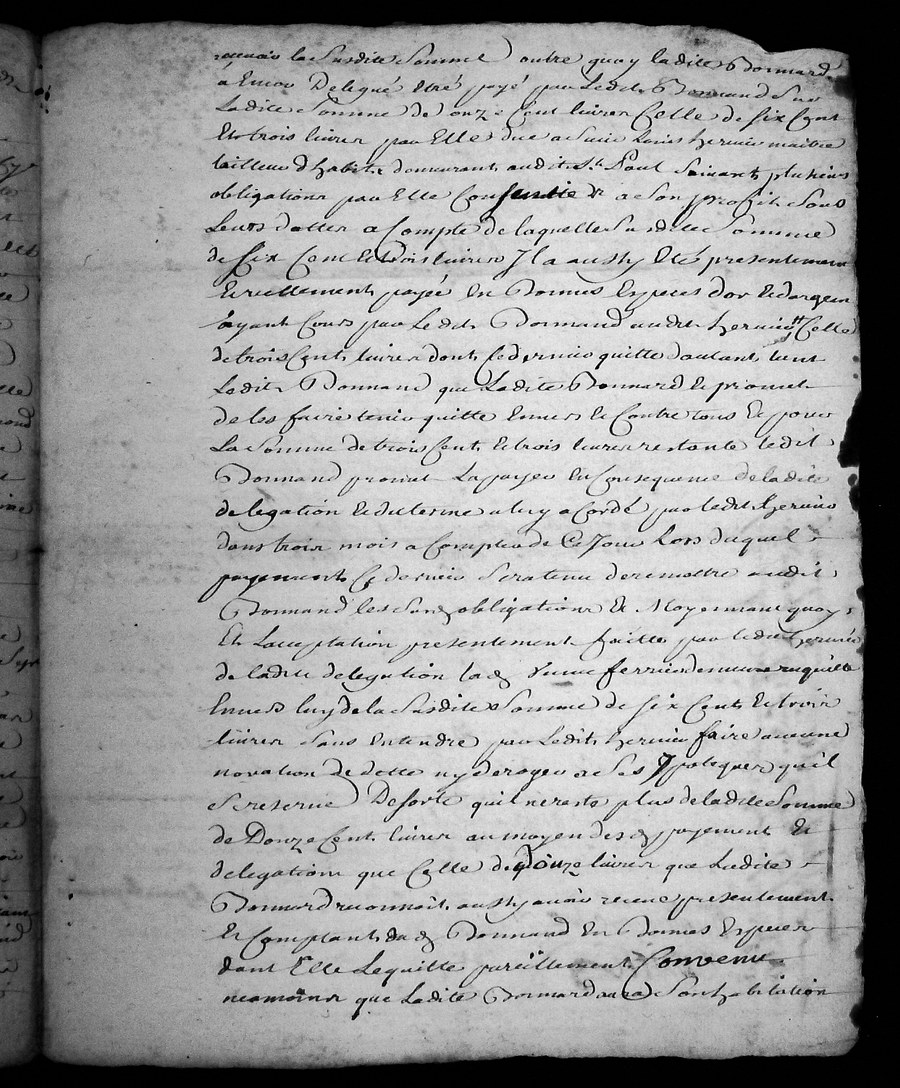 la Susdite Somme outre quoy ladite Bonnard
a Encor Delegué Etré payé par Ledit Bonnand Sur
Ladite Somme de onze Cent livres Celle de Six Cent
Et trois livres par Elle due a Louis hervier maitre
tailleur d'habits demeurant audit St Paul Suivant plusieurs
obligations par Elle Consentie a Son profit Sous
Leurs dattes a Compte de laquelle Susditte Somme
de Six Cent Et trois livres Il a aussy Eté presentement
Et reellement payée En Bonnes Especes dor Et dargent
ayant Cours par Ledit Bonnand audit hervier Celle
de trois Cent livres dont Ce dernier quitte dautant tant
Ledit Bonnand que Ladite Bonnard Et promet
de les faire tenir quitte Envers Et Contre tous Et pour
La Somme de trois Cent Et trois livres restante ledit
Bonnand promet La payer En Consequence de ladite
delegation Et du terme a luy acordé par ledit hervier
dans trois mois a Compter de Ce Jour Lors duquel
payement Ce dernier Sera tenu de remettre audit
Bonnand les Susd obligations Et Moyennant quoy
Et Laceptation presentement faitte par ledit hervier
de ladite delegation lad demeure acquitte
Envers luy de la Susdite Somme de Six Cent Et trois
livres Sans Entendre par Ledit hervier faire aucune
novation de dette ny deroger a Ses Ypoteques quil
Se reserve De sorte quil ne reste plus de ladite Somme
de Douze Cent livres au moyen desd payement Et
delegation que Celle de douze livres que Ladite
Bonnard reconnoit aussy avoir recue presentement
Et Comptant dud Bonnand En Bonnes Especes
dont Elle Le quitte pareillement Convenu
neamoins que Ladite Bonnard aura Son habitation